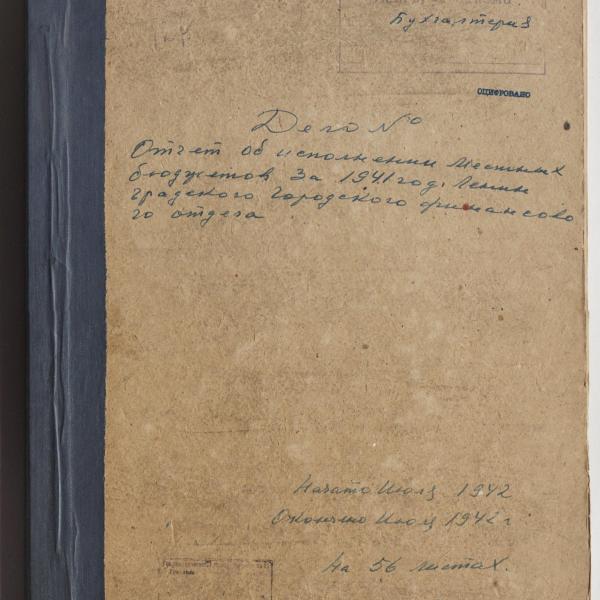 Бухгалтерия
ОЦИФРОВАНО
Дело №
Отчет об исполнении местных
бюджетов за 1941 год. Ленин
градского городского финансово
го отдела
Начато Июль 1942
Окончено Июль 1942 г
На 56 листах.